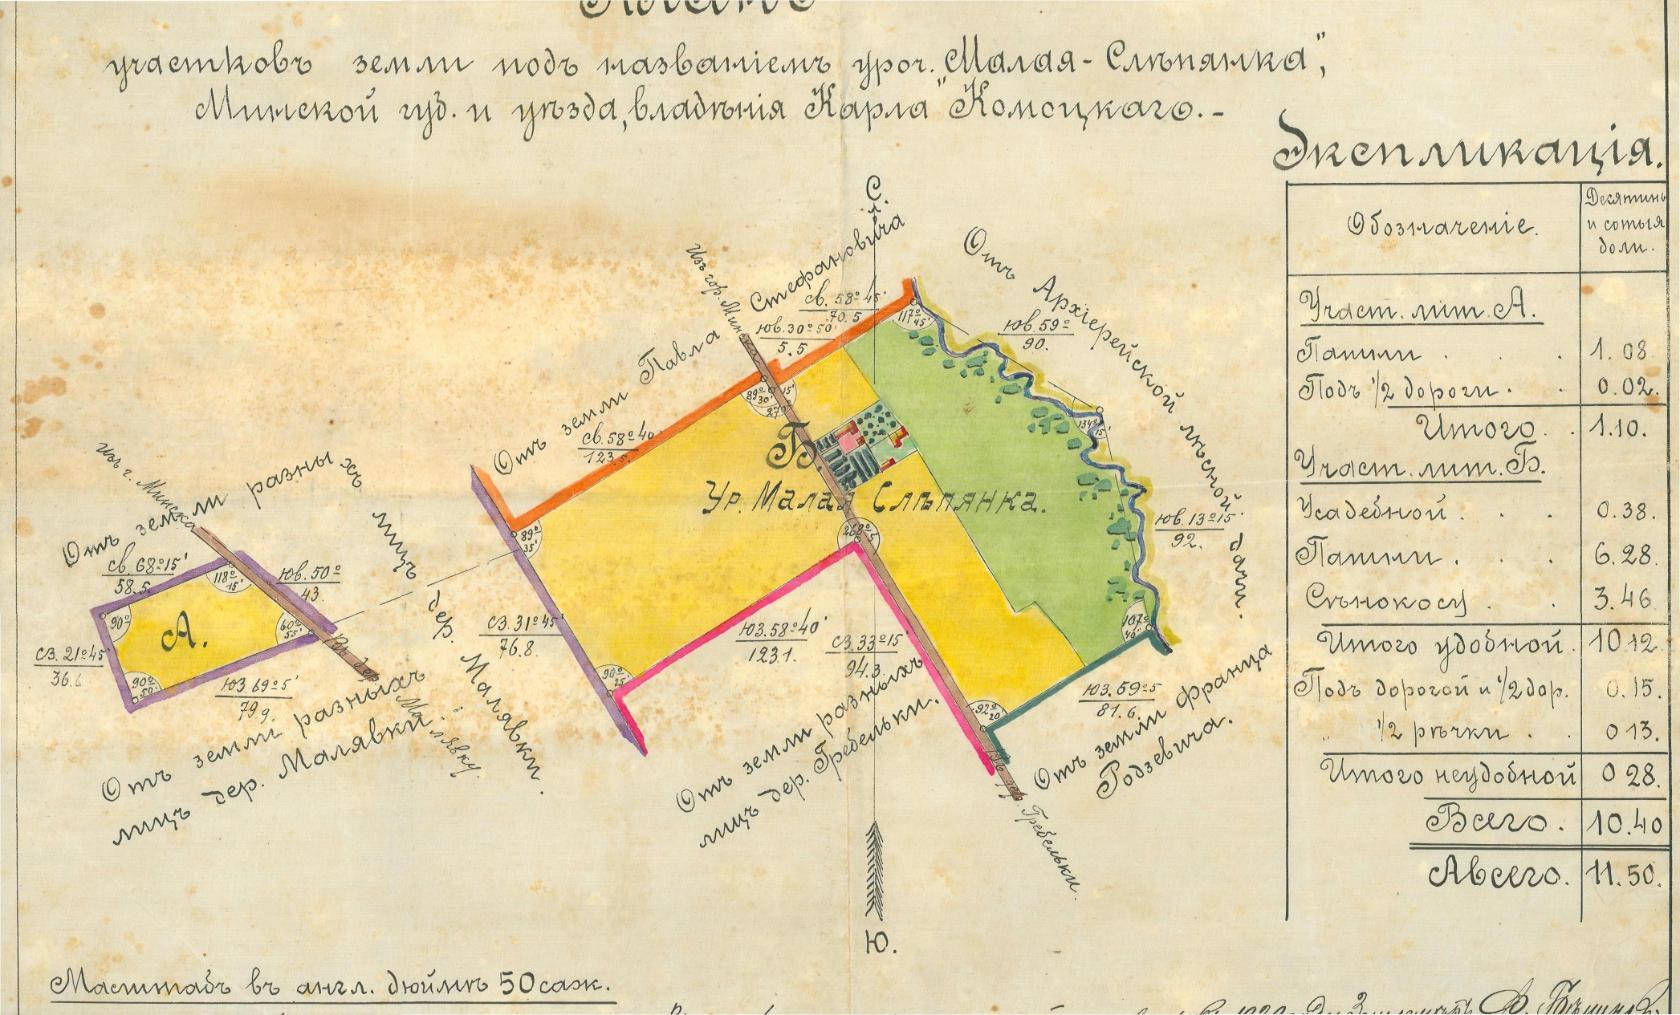 Планъ
участковъ земли подъ названіемъ уроч. „Малая-Слѣпянка",
Минской губ. и уѣзда, владѣнія Карла Комоцкаго.-
Экспликація.
Обозначеніе.
Десятинъ
и сотыя
доли.
Участ. лит. А.
Пашни . . . 1.08.
Подъ 1/2 дороги . . 0.02.
Итого . . 1.10.
Участ. лит. Б.
Усадебной . . . 0.38.
Пашни . . . 6.28.
Сѣнокосу . . 3.46
Итого удобной . 10.12.
Подъ дорогой и 1/2 дор. 0.15.
" 1/2 рѣчки . . 0 13.
Итого неудобной 0 28.
Всего . 10.40
А всего. 11.50.
С.
Отъ земли Павла Стефановича
Изъ гор. Минска
СВ. 58º 45'
70.5
ЮВ. 30º 50'
5.5
СВ. 58º 40'
123.5
Отъ Архіерейской лѣсной дачи.
ЮВ. 59º
90.
ЮВ. 13º 15'
92.
117º 45'
134º 15'
107º 46'
89º 30'
89º 35'
90º 25'
92º 20'
Б
Ур. Малая Слѣпянка.
СЗ. 31º 45'
76.8.
ЮЗ. 58º 40'
123.1.
СЗ. 33º 15
94.3.
ЮЗ. 59º 5
81.6.
Отъ земли разныхъ
лицъ дер. Гребельки.
Отъ земли Франца
Родзевича.
Въ дер. Гребельки.
Изъ г. Минска
Отъ земли разныхъ лицъ дер. Малявки.
СВ. 68º 15'
58.5.
ЮВ. 50º
43.
СЗ. 21º 45'
36.6
ЮЗ. 69º 5'
79.9.
90º
118º 15'
60º 55'
90º 50'
А.
Въ де. Малявку.
Отъ земли разныхъ
лицъ дер. Малявки
Ю.
Масштабъ въ англ. дюймѣ 50 саж.